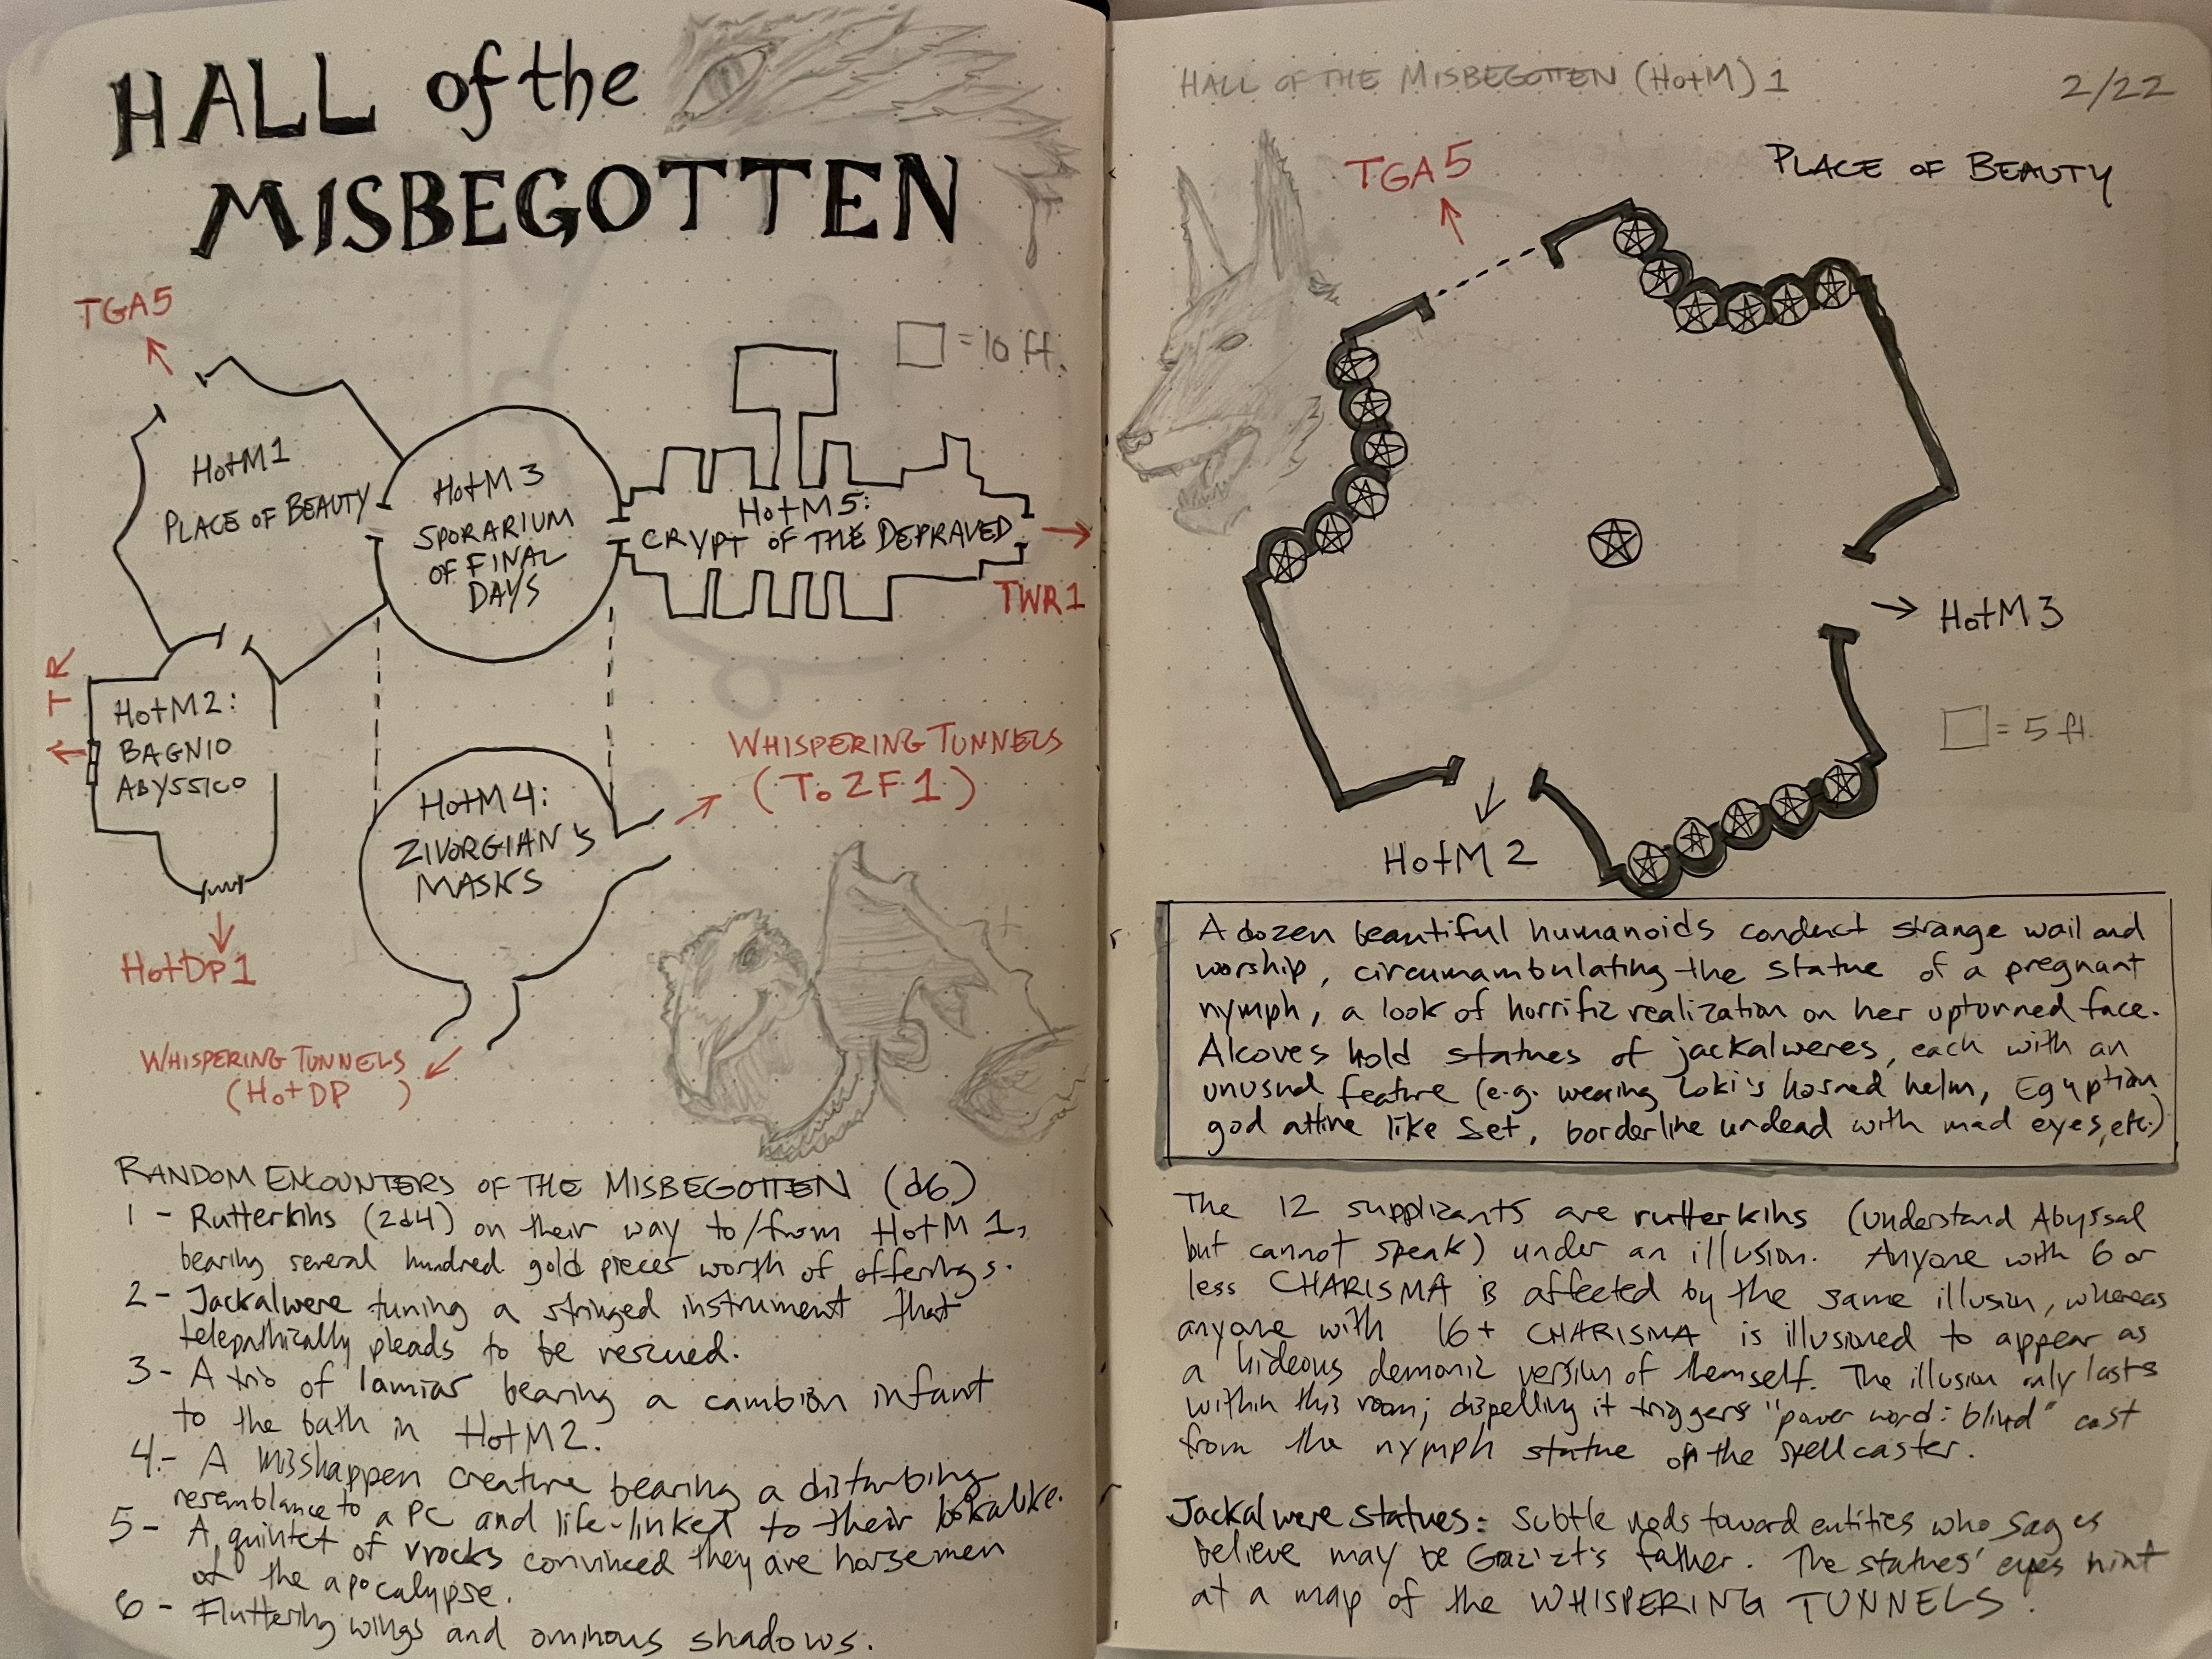 HALL of the
MISBEGOTTEN
TGA5
□ = 10 ft.
HotM1
PLACE OF BEAUTY
HotM3
SPORARIUM
OF FINAL
DAYS
HotM5:
CRYPT OF THE DEPRAVED
TWR1
TR
HotM2:
BAGNIO
ABYSSICO
HotDP1
HotM4:
ZIVORGIAN'S
MASKS
WHISPERING TUNNELS
(To ZF1)
WHISPERING TUNNELS
(HotDP )
RANDOM ENCOUNTERS OF THE MISBEGOTTEN (d6)
1 - Rutterkins (2d4) on their way to/from HotM1,
bearing several hundred gold pieces worth of offerings.
2 - Jackalwere tuning a stringed instrument that
telepathically pleads to be rescued.
3 - A trio of lamias bearing a cambion infant
to the bath in HotM2.
4.- A misshappen creature bearing a disturbing
resemblance to a PC and life-linked to their lookalike.
5 - A quintet of vrocks convinced they are horsemen
of the apocalypse.
6 - Fluttering wings and ominous shadows.
HALL OF THE MISBEGOTTEN (HotM) 1
2/22
TGA5
PLACE OF BEAUTY
HotM3
□ = 5 ft.
HotM2
A dozen beautiful humanoids conduct strange wail and
worship, circumambulating the statue of a pregnant
nymph, a look of horrific realization on her upturned face.
Alcoves hold statues of jackalweres, each with an
unusual feature (e.g. wearing Loki's horned helm, Egyptian
god attire like Set, borderline undead with mad eyes, etc.)
The 12 supplicants are rutterkins (understand Abyssal
but cannot speak) under an illusion. Anyone with 6 or
less CHARISMA is affected by the same illusion, whereas
anyone with 16+ CHARISMA is illusioned to appear as
a hideous demonic version of themself. The illusion only lasts
within this room; dispelling it triggers "power word: blind" cast
from the nymph statue on the spellcaster.
Jackalwere statues: Subtle nods toward entities who sages
believe may be Graz'zt's father. The statues' eyes hint
at a map of the WHISPERING TUNNELS.